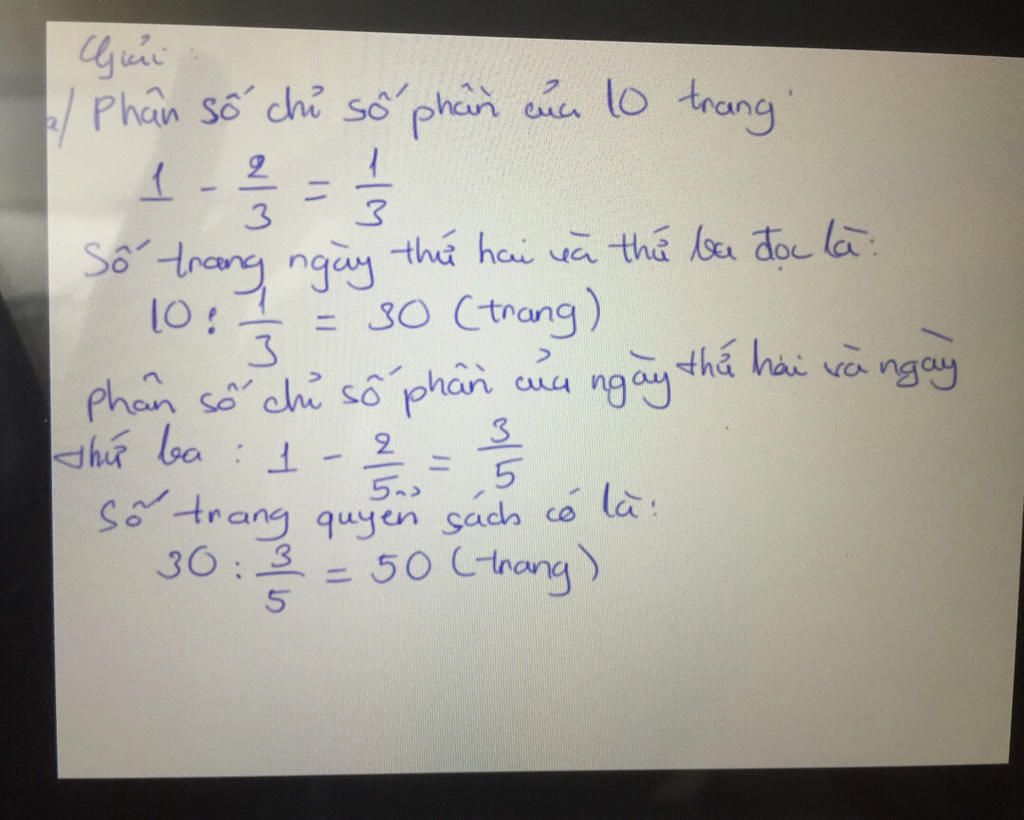 Giải:
a/ Phân số chỉ số phần của 10 trang:
1 - 2/3 = 1/3
Số trang ngày thứ hai và thứ ba đọc là:
10 : 1/3 = 30 (trang)
Phân số chỉ số phần của ngày thứ hai và ngày
thứ ba : 1 - 2/5 = 3/5
Số trang quyển sách có là:
30 : 3/5 = 50 (trang)